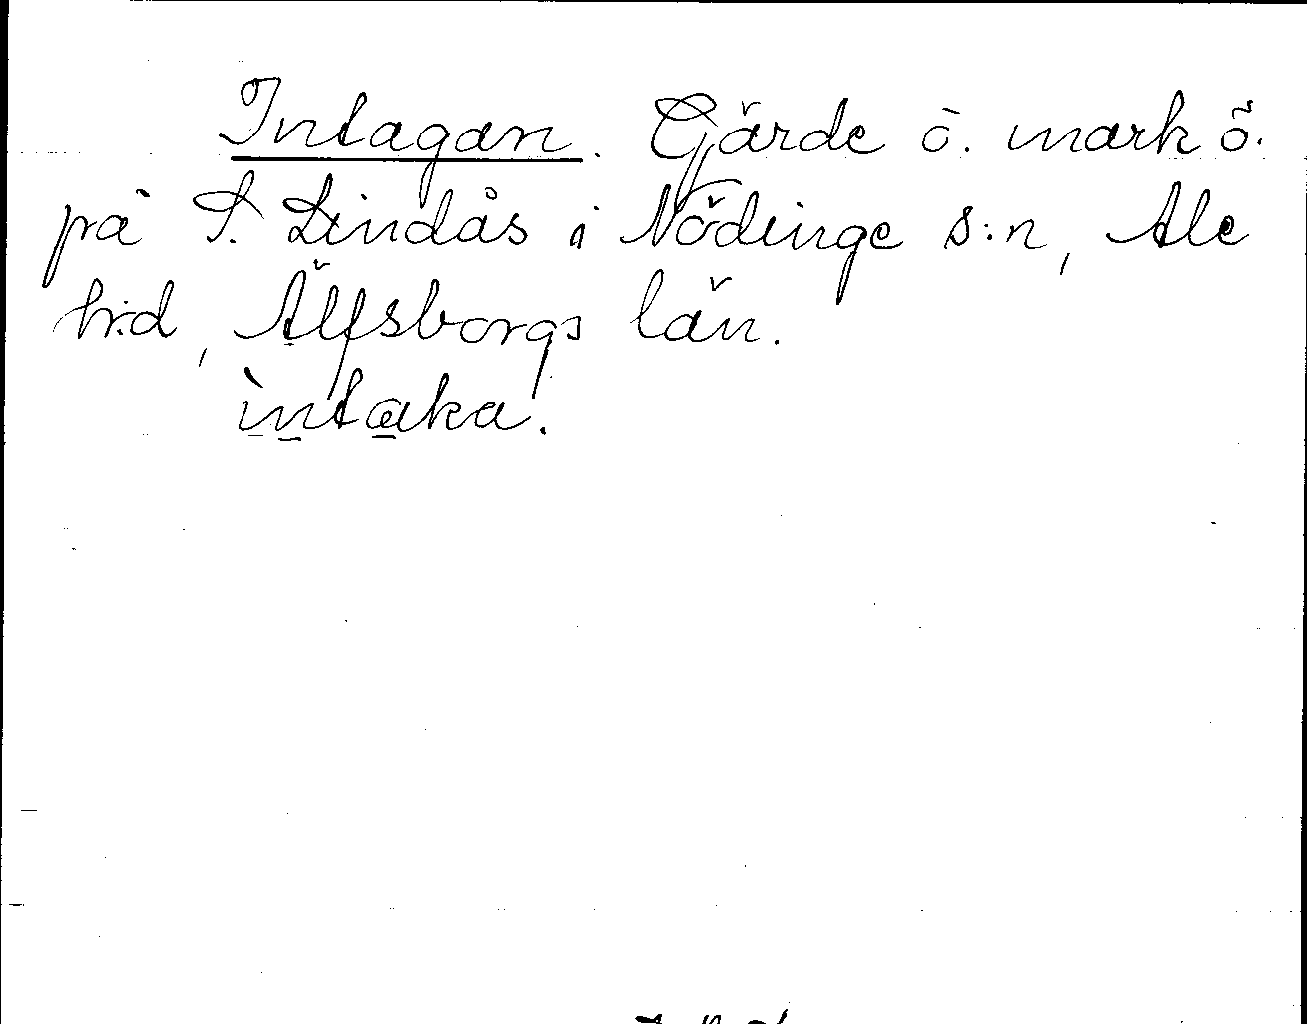 Intagan. Gärde o. mark ö.
på S. Lindås i Nödinge s:n, Ale
h:d, Älfsborgs län.
ìntaka.